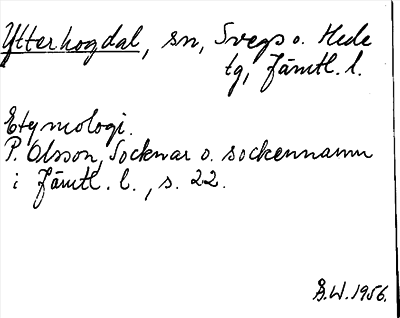 Ytterhogdal, sn, Svegs o. Hede
tg, Jämtl. l.
Etymologi.
P. Olsson, Socknar o. sockennamn
i Jämtl. l., s. 22.
B.W. 1956.